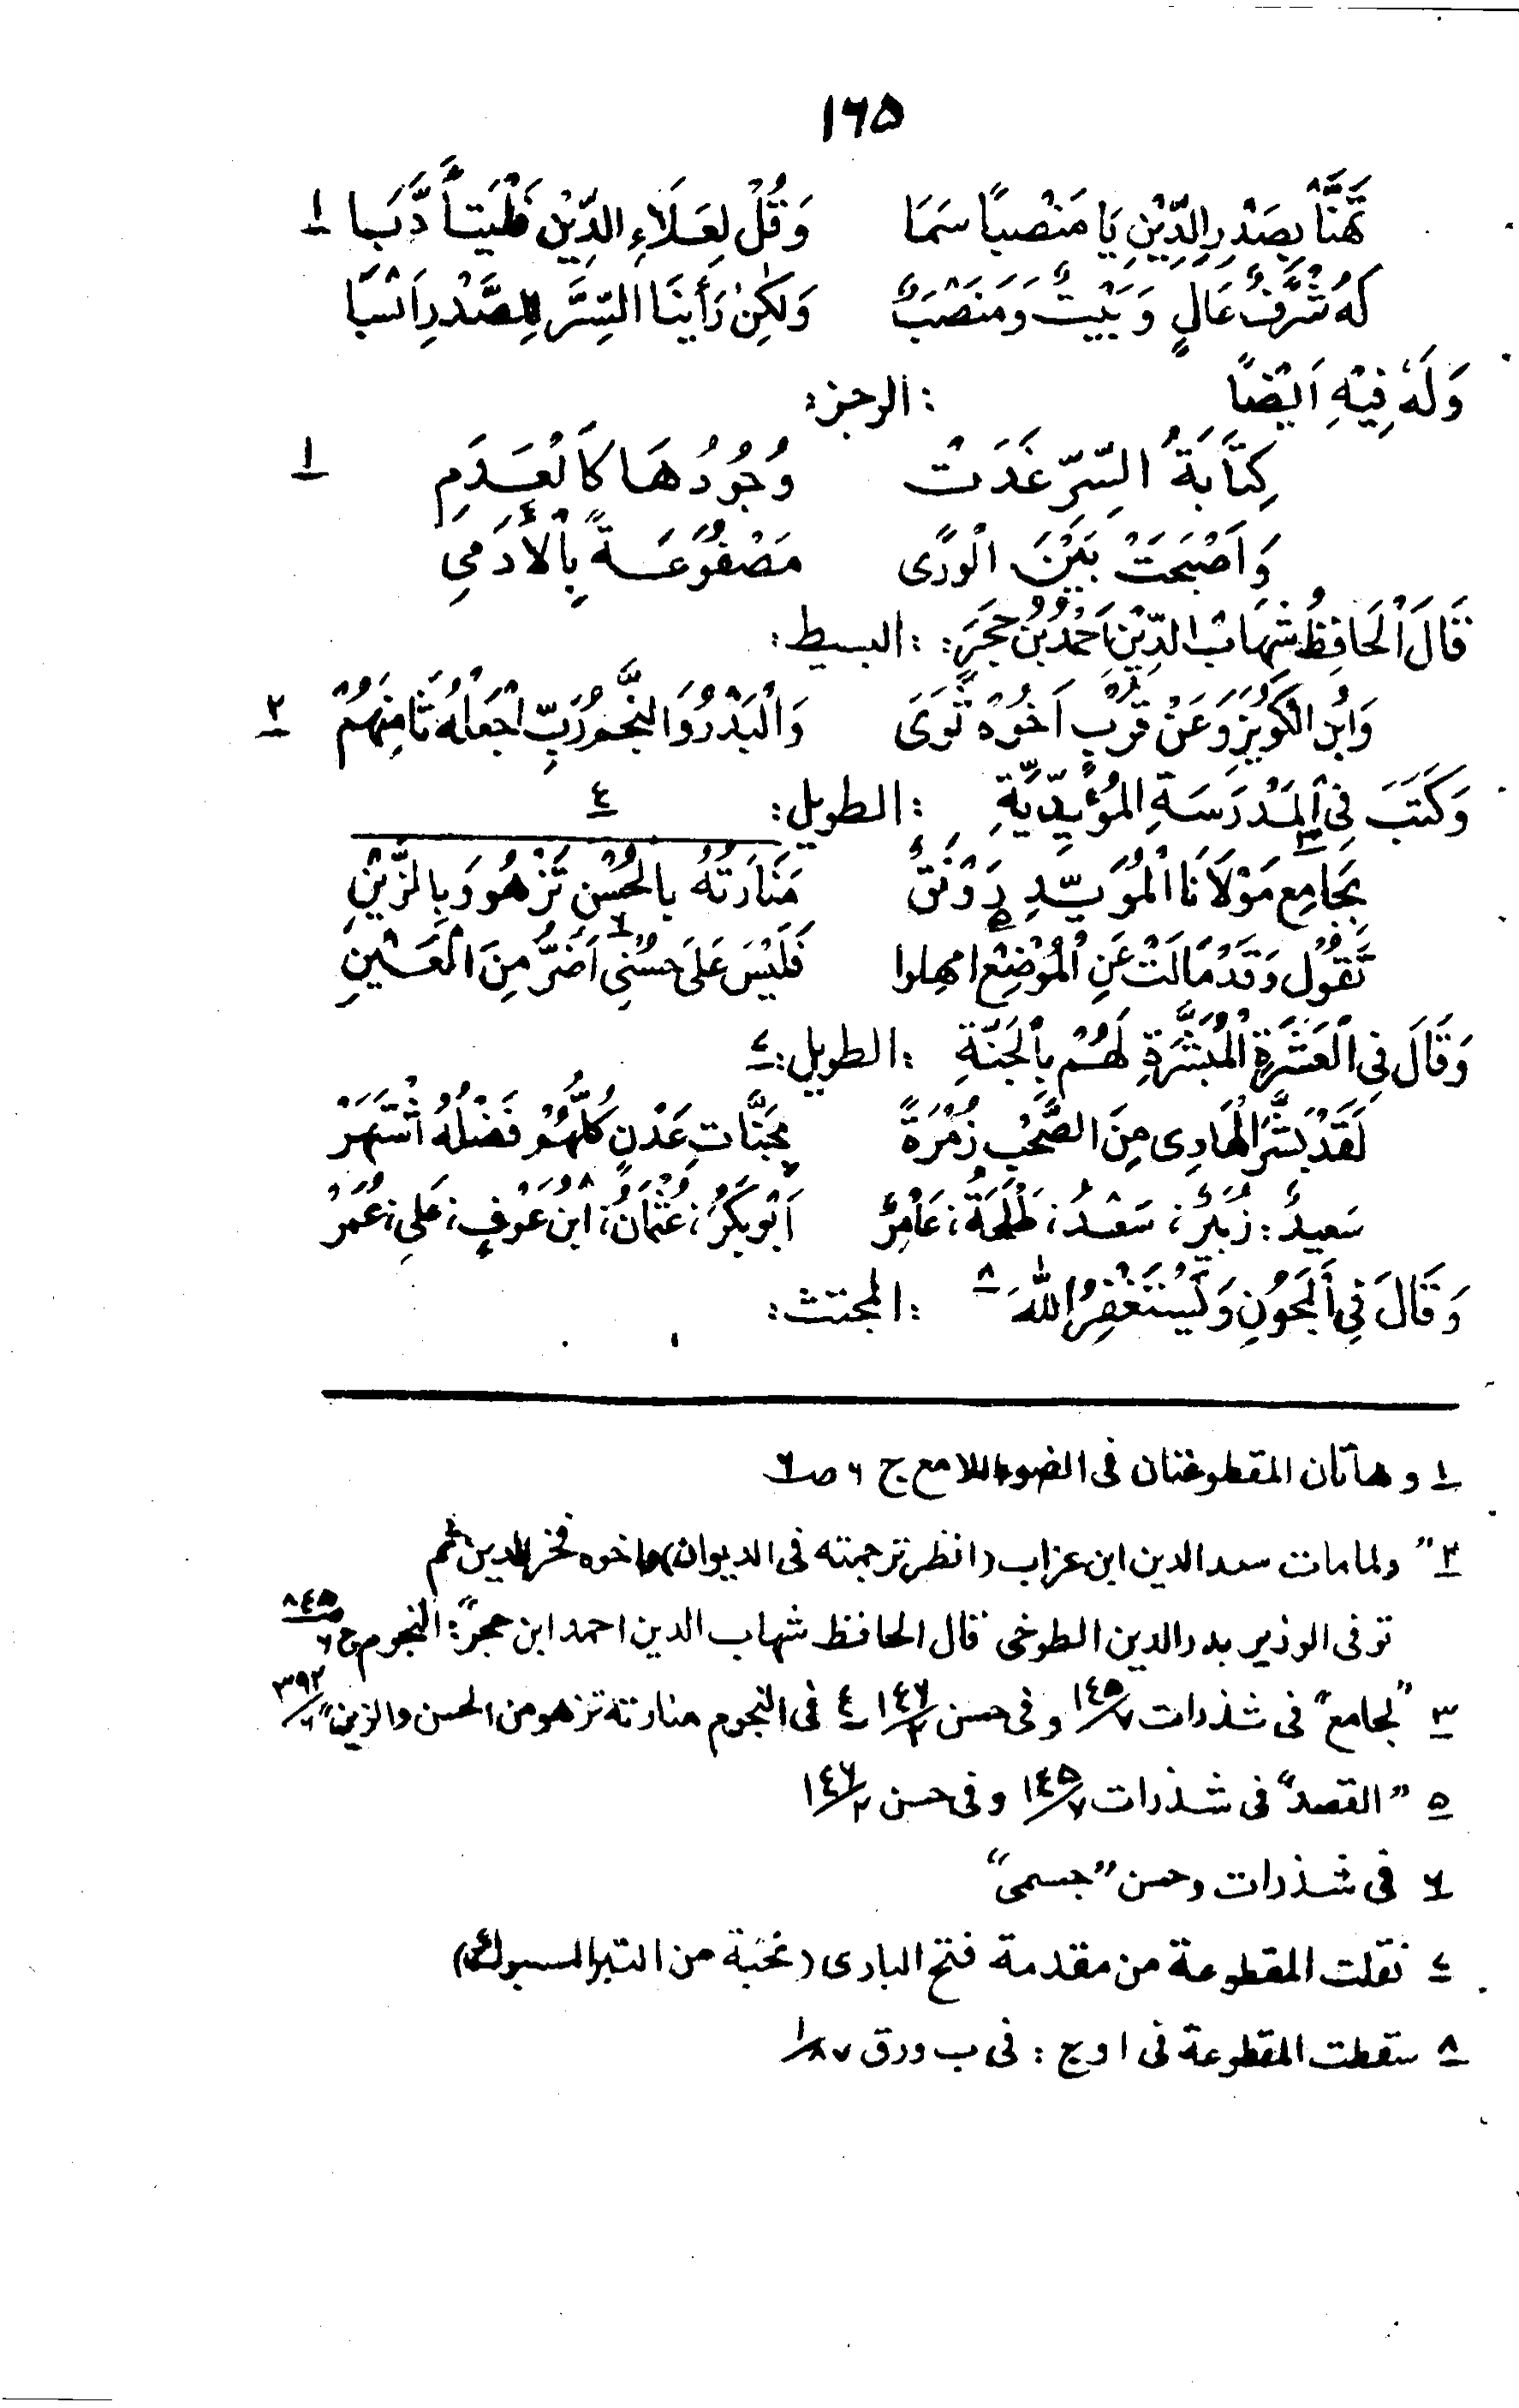 ١٦٥
تَهَنَّأْ بِصَدْرِ الدِّيْنِ يَا مَنْصِبًا سَمَا وَقُلْ لِعَلَاءِ الدِّيْنِ ١
لَهُ شَرَفٌ عَالٍ وَبَيْتٌ وَمَنْصَبٌ وَلٰكِنْ رَأَيْنَا السِّرَّ لِلصَّدْرِ اَنْسَبَا
وَلَهُ فِيْهِ اَيْضًا :الرجز:
كِتَابَةُ السِّرِّ غَدَتْ وُجُوْدُهَا كَالْعَدَمِ ١
وَاَصْبَحَتْ بَيْنَ الْوَرٰى مَصْفُوْعَةً بِالْأَدَمِي
قَالَ الْحَافِظُ شِهَابُ الدِّيْنِ اَحْمَدُ بْنُ حَجَرٍ: :البسيط:
وَابْنُ الْكُوَيْزِ وَعَنْ قُرْبٍ اَخُوْهُ ثَوَى وَالْبَدْرُ وَالنَّجْمُ رَبِّ اجْعَلْهُ ثَامِنَهُمْ ٢
وَكَتَبَ فِي الْمَدْرَسَةِ الْمُؤَيَّدِيَّةِ :الطويل: ٤
بِجَامِعِ ٣ مَوْلَانَا الْمُؤَيَّدِ رَوْنَقٌ مَنَارَتُهُ بِالْحُسْنِ تَزْهُو وَبِالزَّيْنِ
تَقُوْلُ وَقَدْ مَالَتْ عَنِ الْمَوْضِعِ ٥ امهلوا فَلَيْسَ عَلَى حُسْنِي ٦ اَضَرُّ مِنَ الْعَيْنِ
وَقَالَ فِي الْعَشَرَةِ الْمُبَشَّرَةِ لَهُمْ بِالْجَنَّةِ :الطويل: ٧
لَقَدْ بَشَّرَ الْهَادِى مِنَ الصَّحْبِ زُمْرَةً بِجَنَّاتِ عَدْنٍ كُلُّهُمْ فَضْلُهُ اشْتَهَرْ
سَعِيدٌ: زُبَيْرٌ، سَعْدٌ، طَلْحَةُ، عَامِرٌ اَبُوْبَكَرٍ، عُثْمَانُ، ابْنُ عَوْفٍ، عَلِي، عُمَرْ
وَقَالَ فِي الْمَجُوْنِ وَيَسْتَغْفِرُ اللهَ ٨ :المجتث:
١ و هاتان المقطوعتان فى الضوء اللامع ج ٦ ص ٦
٢ ״ ولما مات سعد الدين ابن عزاب (انظر ترجمته فى الديوان) واخوه فخر الدين ثم
توفى الوزير بدر الدين الطوخى قال الحافظ شهاب الدين احمد ابن حجر״: النجوم ج ٦ ٨٤٥
٣ ״لجامع״ فى شذرات ١٤٥/٧ و فى حسن ١٤٦/٢ ٤ فى النجوم منارته تزهو من الحسن والزين״ ٣٩٢/٦
٥ ״القصد״ فى شذرات ١٤٥/٧ و فى حسن ١٤٦/٢
٦ فى شذرات وحسن ״جسمى״
٧ نقلت المقطوعة من مقدمة فتح البارى (نخبة من التبر المسبوك)
٨ سقطت المقطوعة فى ا و ج : فى ب ورق ٨٧/١